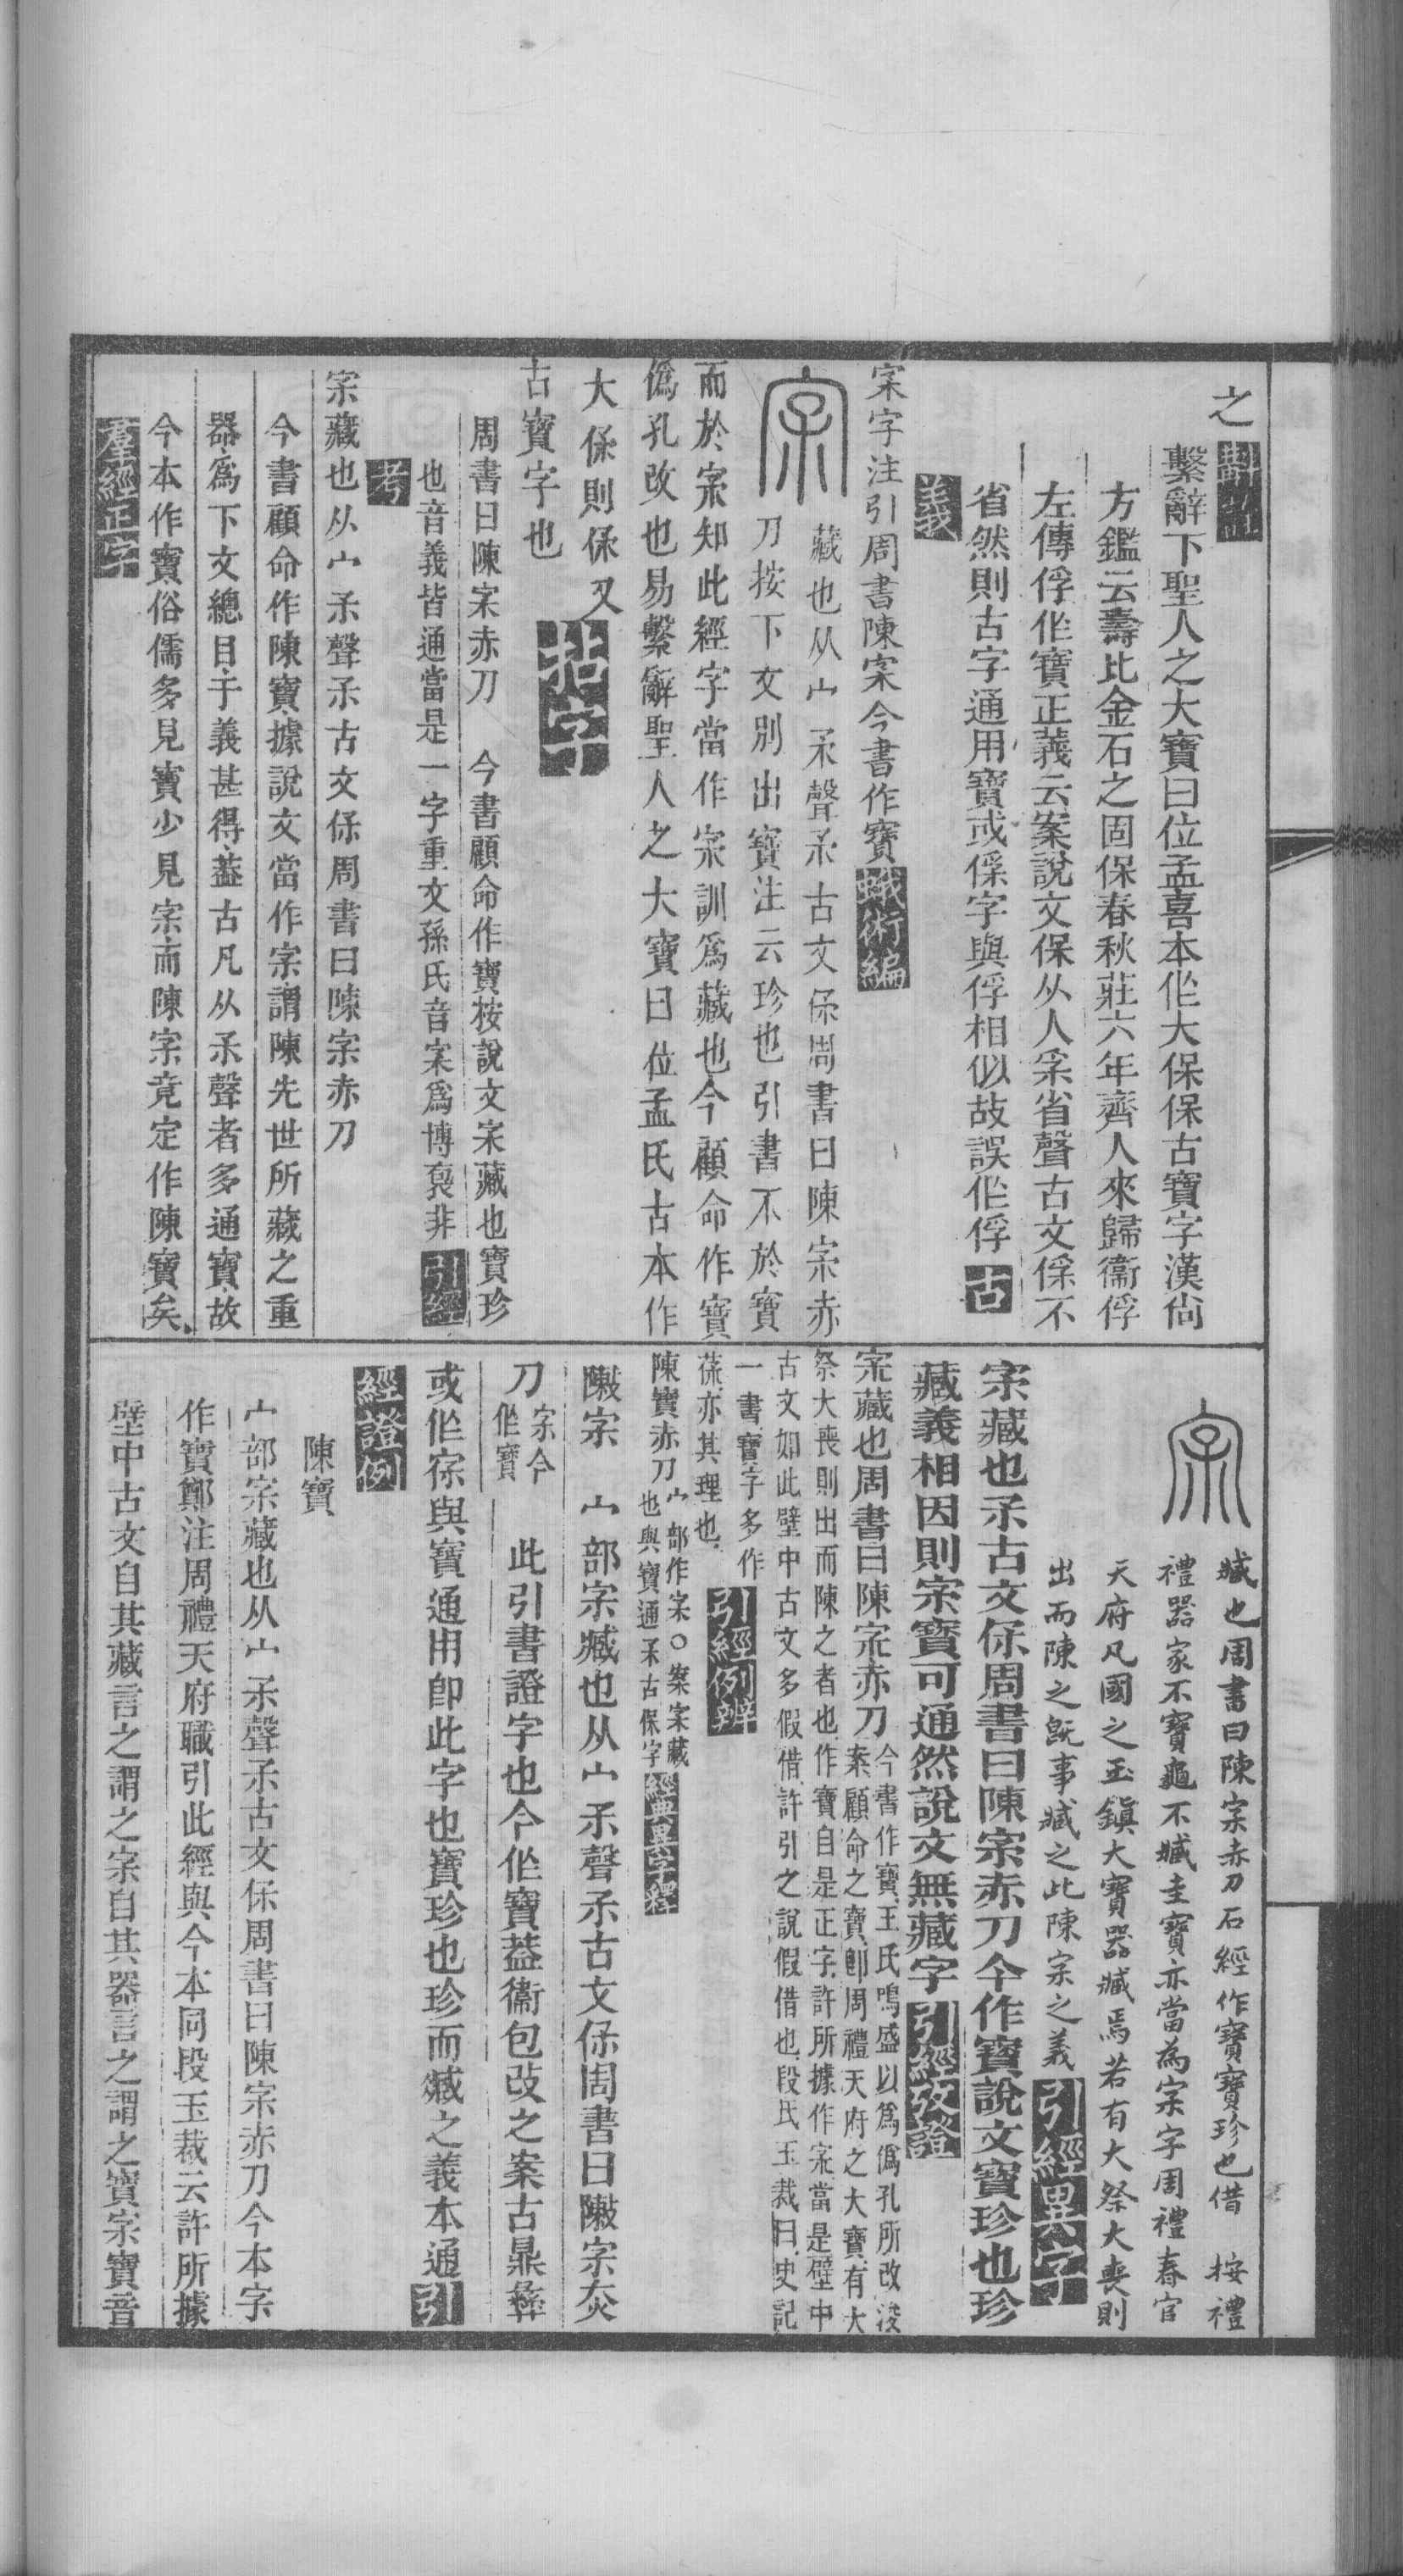 之斠詮
繫辭下聖人之大寶曰位孟喜本作大保保古寶字漢尙
方鑑云壽比金石之固保春秋莊六年齊人來歸衞俘
左傳俘作寶正義云案說文保从人𤓽省聲古文保不
省然則古字通用寶或保字與俘相似故誤作俘古
義
宲字注引周書陳宲今書作寶蛾術編
宲
藏也从宀𤓽聲𤓽古文保周書曰陳宲赤
刀按下文別出寶注云珍也引書不於寶
而於宲知此經字當作宲訓爲藏也今顧命作寶
僞孔改也易繫辭聖人之大寶曰位孟氏古本作
大保則保又
古寶字也
拈字
周書曰陳宲赤刀 今書顧命作寶按說文宲藏也寶珍
也音義皆通當是一字重文孫氏音宲爲博裒非引經
考
宲藏也从宀𤓽聲𤓽古文保周書曰陳宲赤刀
今書顧命作陳寶據說文當作宲謂陳先世所藏之重
器爲下文總目于義甚得葢古凡从𤓽聲者多通寶故
今本作寶俗儒多見寶少見宲而陳宲竟定作陳寶矣
羣經正字
宲
臧也周書曰陳宲赤刀石經作寶寶珍也借 按禮
禮器家不寶龜不臧圭寶亦當為宲字周禮春官
天府凡國之玉鎮大寶器臧焉若有大祭大喪則
出而陳之旣事臧之此陳宲之義引經異字
宲藏也𤓽古文保周書曰陳宲赤刀今作寶說文寶珍也珍
藏義相因則宲寶可通然說文無藏字引經攷證
宲藏也周書曰陳宲赤刀今書作寶王氏鳴盛以爲僞孔所改浚
案顧命之寶卽周禮天府之大寶有大
祭大喪則出而陳之者也作寶自是正字許所據作宲當是壁中
古文如此壁中古文多假借許引之說假借也段氏玉裁曰史記
一書寶字多作
葆亦其理也
引經例辨
陳寶赤刀宀部作宲○案宲藏
也與寶通𤓽古保字經典異字釋
陳宲 宀部宲臧也从宀𤓽聲𤓽古文保周書曰陳宲赤
刀宲今
作寶 此引書證字也今作寶葢衞包改之案古鼎彝
或作宲與寶通用卽此字也寶珍也珍而臧之義本通引
經證例
陳寶
宀部宲藏也从宀𤓽聲𤓽古文保周書曰陳宲赤刀今本字
作寶鄭注周禮天府職引此經與今本同段玉裁云許所據
壁中古文自其藏言之謂之宲自其器言之謂之寶宲寶音